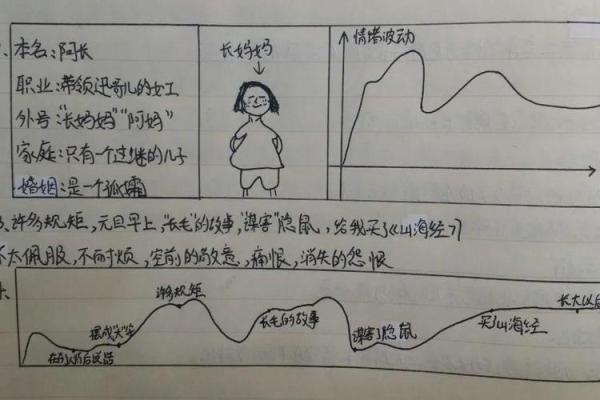 本名：阿长
职业：带领迅哥儿的女工
外号：“长妈妈”“阿妈”
家庭：只有一个过继的儿子
婚姻：是一个孤孀
长妈妈
情绪波动
许多规矩，元旦早上，“长毛”的故事，“谋害”隐鼠，给我买了《山海经》
太佩服，不耐烦，空前的敬意，痛恨，消失的怨恨
许多规矩
长毛的故事
谋害了隐鼠
买《山海经》
长大以后